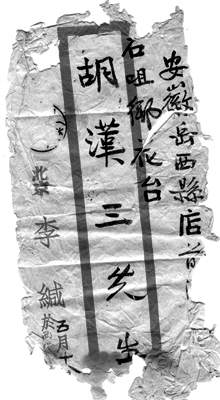 安徽岳西縣店前
石咀鄉花台
胡漢三先生
北京 李 緘
於 五月十八